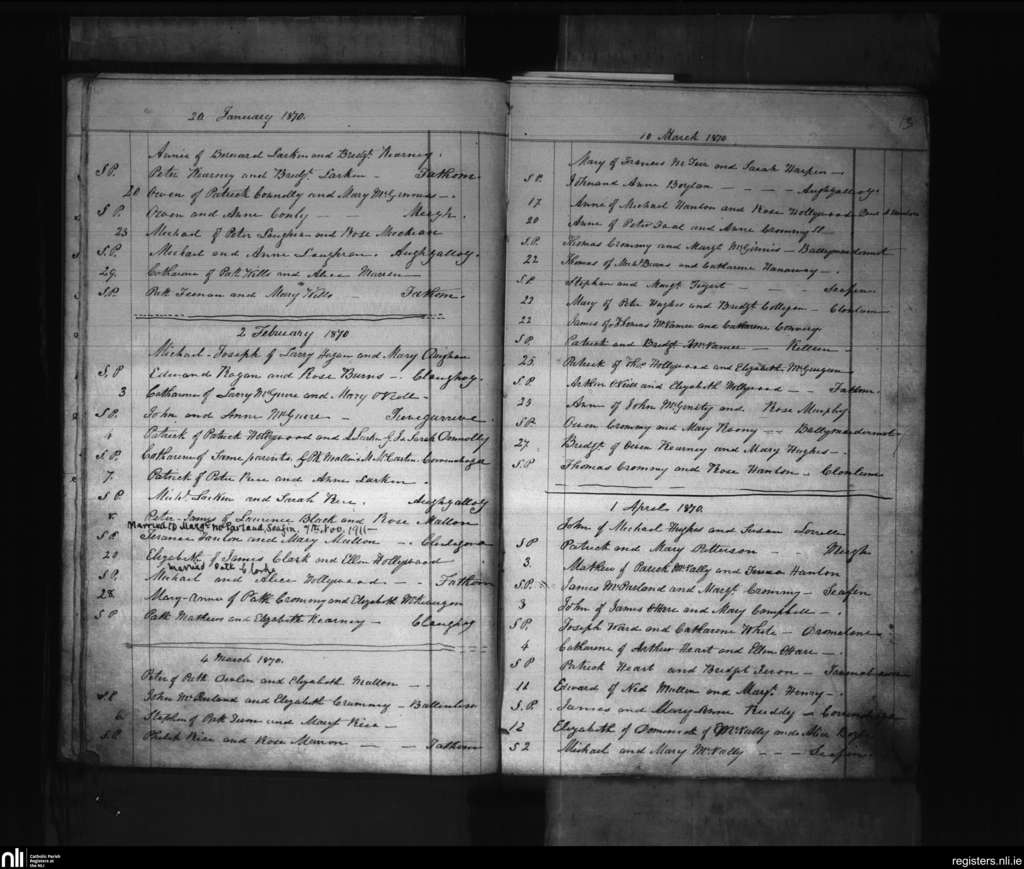 20 January 1870.
Annie of Bernard Larkin and Bridgt. Kearney.
S.P. Peter Kearney and Bridgt. Larkin - Fathom.
20 Owen of Patrick Connolly and Mary McGinnis -.
S.P. Owen and Anne Conly - - Meigh.
23 Michael of Peter Loughran and Rose
S.P. Michael and Anne Loughran. Aughgalloy.
29. Catharine of Patk. Wills and Alice Murren -
S.P. Patk and Mary Wills - Fathom.
2 February 1870
Michael-Joseph of Larry Hagan and Mary
S.P. Edmund Ragan and Rose Burns -. Claughog.
3 Catharine of Larry McGuire and Mary O'Neill -
S.P. John and Anne McGuire -
4 Patrick of Patrick Hollywood and Larkin Sarah Connolly
S.P. Catharine of Same parents. Patk Mallon
7. Patrick of Peter Rice and Anne Larkin.
S.P. Michl. Larkin and Sarah Rice. Aughgalloy
Peter-James of Laurence Black and Rose Mallon
Married to Margt. McParland, Seafin, 9th Nov. 1911-
S.P. Terance Fanlon and Mary Mallon -.
20 Elizabeth of James Clark and Ellen Hollywood
married Patk Clarke
S.P. Michael and Alice Hollywood - - Fathom
28. Mary-Anne of Patk Crommy and Elizabeth McKeurgan
S.P. Patk Mathews and Elizabeth Kearney - Claughog
4 March 1870.
Peter of Patk and Elizabeth Mallon -.
S.P. John McParland and Elizabeth Crummy -
6 Stephen of Patk and Mary Rice -
S.P. Philip Rice and Rose Marron - - Fathom
13
10 March 1870
Mary of Francis McTeer and Sarah Harpin -
S.P. John and Anne Boylan - - - - Aughgalloy.
17. Anne of Michael Hanlon and Rose Hollywood
20 Anne of Peter and Anne Crommy
S.P. Thomas Crommy and Margt. McGinnis - Ballymacdermot
22 Thomas of Michl. Burns and Catharine Hanaway -.
S.P. Stephen and Margt. - - - Seafin.
22 Mary of Peter Hughes and Bridgt. Colligan - Clontum
22 James of Thomas McNamee and Catharine Convery.
S.P. Patrick and Bridgt. McNamee - Killeen -
23. Patrick of Thos. Hollywood and Elizabeth McGuigan
S.P. Arthur O'Neill and Elizabeth Hollywood - Fathom
23 Anne of John McGinity and Rose Murphy
S.P. Owen Crommy and Mary - Ballymacdermot
27 Bridgt. of Owen Kearney and Mary Hughes -.
S.P. Thomas Crommy and Rose Hanlon - Clontum
1 April 1870.
John of Michael Hughes and Susan
S.P. Patrick and Mary Patterson - Meigh
3. Mathew of Patrick McNally and Teresa Hanlon
S.P. James McParland and Margt. Crommy - Seafin
3 John of James O'Hare and Mary Campbell -.
S.P. Joseph Ward and Catharine White - Dromalane
4 Catharine of Arthur Heart and Ellen O'Hare -.
S.P. Patrick Heart and Bridgt
11 Edward of Ned Mullen and Margt. Henry -.
S.P. James and Mary Anne Ruddy -
12 Elizabeth of Dominick McNally and Alice
S.P. Michael and Mary McNally - - - Seafin
nli
Catholic Parish
Registers at
the NLI
registers.nli.ie